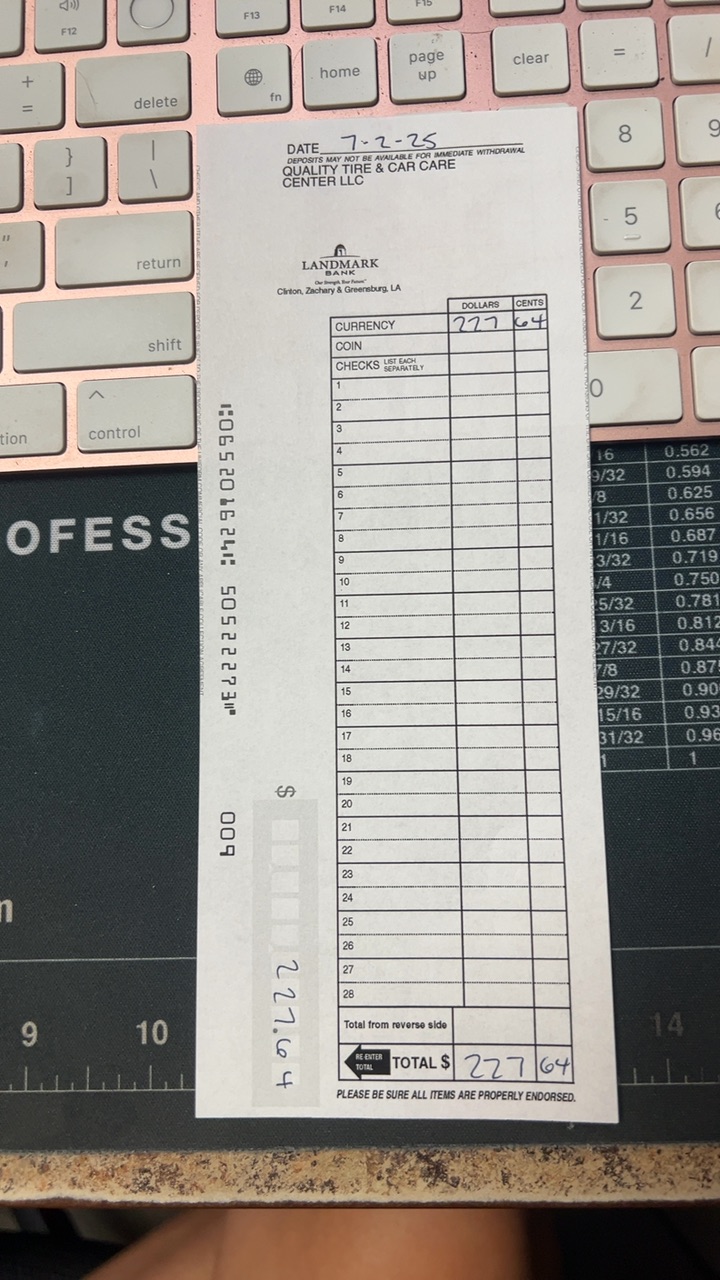 F12
F13
F14
F15
+
=
delete
fn
home
page
up
clear
=
/
}
]
|
\
8
9
"
,
return
- 5
6
shift
2
^
control
tion
0
DATE 7-2-25
DEPOSITS MAY NOT BE AVAILABLE FOR IMMEDIATE WITHDRAWAL
QUALITY TIRE & CAR CARE
CENTER LLC
LANDMARK
BANK
Our Strength. Your Future.™
Clinton, Zachary & Greensburg, LA
DOLLARS CENTS
CURRENCY 227 64
COIN
CHECKS LIST EACH SEPARATELY
1
2
3
4
5
6
7
8
9
10
11
12
13
14
15
16
17
18
19
20
21
22
23
24
25
26
27
28
Total from reverse side
RE-ENTER TOTAL TOTAL $ 227 64
PLEASE BE SURE ALL ITEMS ARE PROPERLY ENDORSED.
$ 227.64
OFESS
16 0.562
9/32 0.594
/8 0.625
1/32 0.656
1/16 0.687
3/32 0.719
/4 0.750
5/32 0.781
3/16 0.812
27/32 0.844
7/8 0.87
29/32 0.90
15/16 0.93
31/32 0.96
1 1
9 10 14